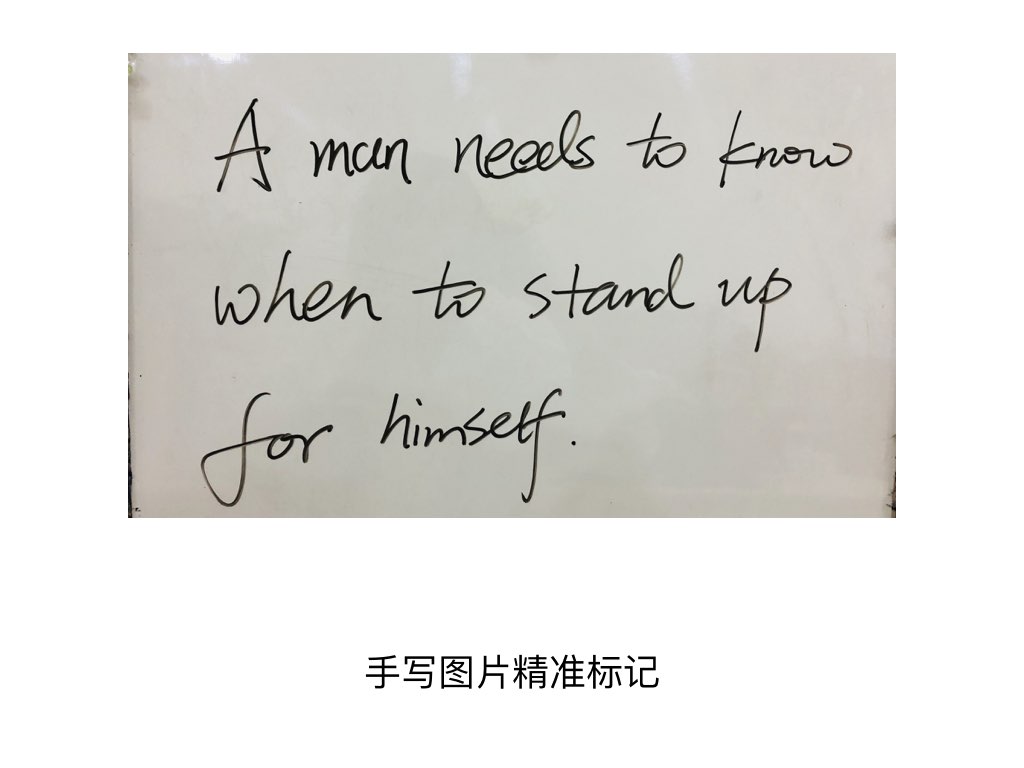 A man needs to know
when to stand up
for himself.
手写图片精准标记